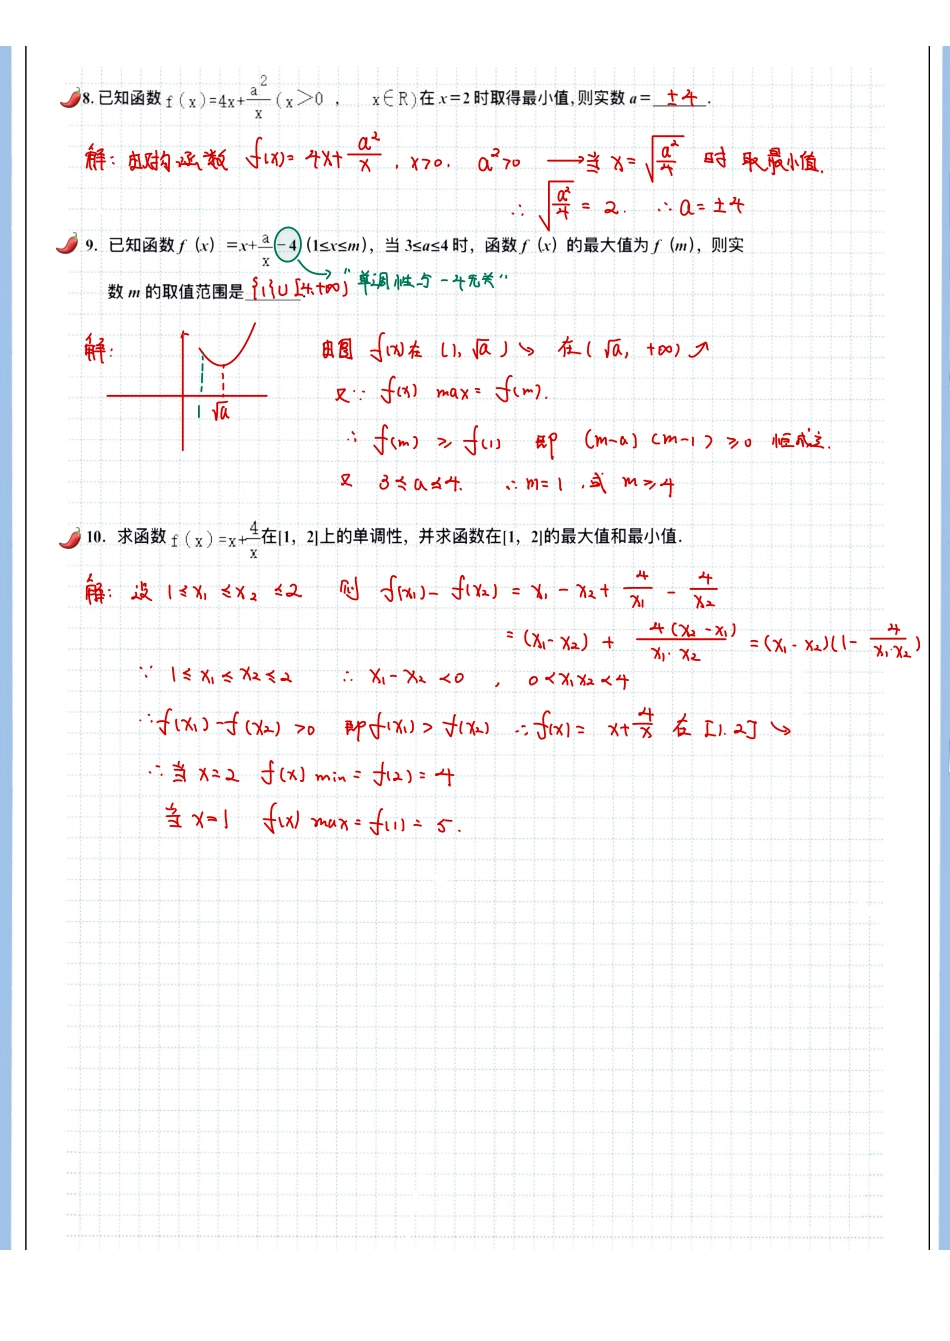 8. 已知函数 f(x)=4x+a²/x (x>0, x∈R)在 x=2 时取得最小值,则实数 a= ±4 .
解: 由对勾函数 f(x)= 4x+a²/x , x>0. a²>0 ⟶当 x=√(a²/4) 时 取最小值.
∴ √(a²/4) = 2. ∴a=±4
9. 已知函数 f(x)=x+a/x-4(1≤x≤m),当 3≤a≤4 时,函数 f(x)的最大值为 f(m),则实
“单调性与-4无关”
数 m 的取值范围是 {1}∪[4.+∞)
解:
1 √a
由图 f(x)在 (1, √a) ↘ 在(√a, +∞) ↗
又∵ f(x) max = f(m).
∴ f(m) ≥ f(1) 即 (m-a)(m-1) ≥0 恒成立.
又 3≤a≤4. ∴m=1 ,或 m≥4
10. 求函数 f(x)=x+4/x 在[1,2]上的单调性,并求函数在[1,2]的最大值和最小值.
解: 设 1≤x₁≤x₂≤2 则 f(x₁)-f(x₂) = x₁-x₂+4/x₁-4/x₂
=(x₁-x₂)+4(x₂-x₁)/x₁·x₂=(x₁-x₂)(1-4/x₁·x₂)
∵ 1≤x₁≤x₂≤2 ∴ x₁-x₂<0 , 0<x₁x₂<4
∴f(x₁)-f(x₂)>0 即f(x₁)>f(x₂) ∴f(x)= x+4/x 在[1.2]↘
∴当 x=2 f(x)min=f(2)=4
当 x=1 f(x)max=f(1)=5.